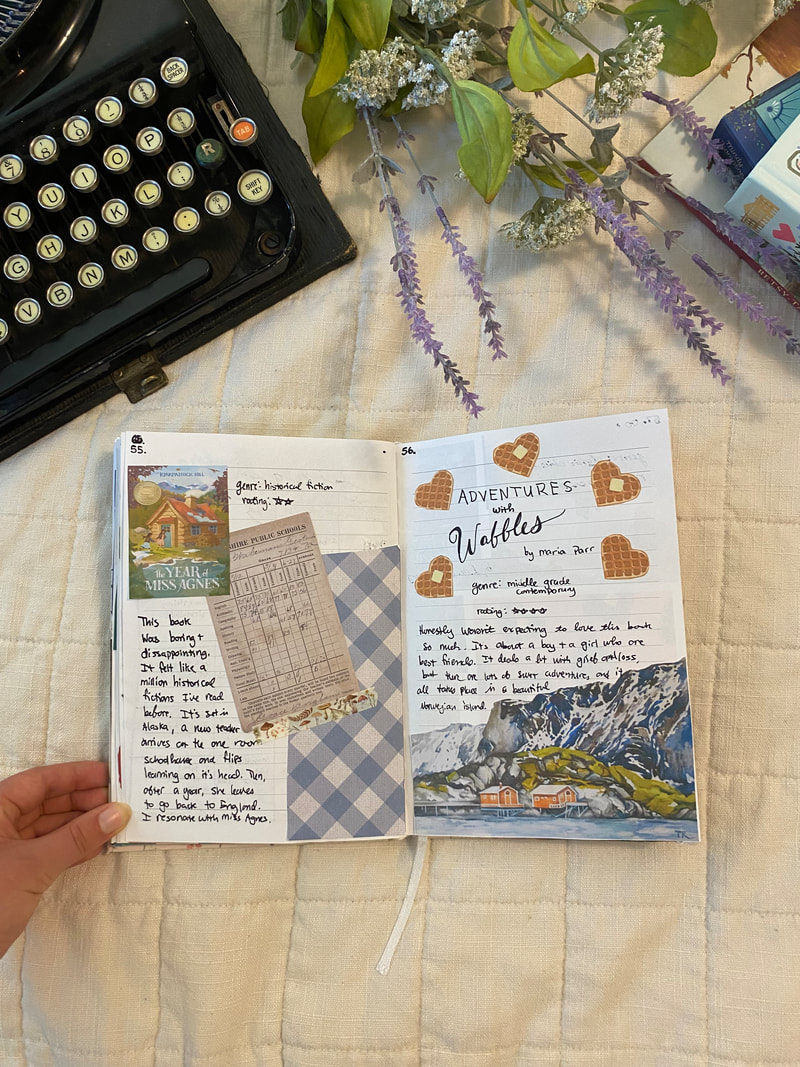 BACK SPACER
TAB
& 7
8
9
Y
U
I
O
P
R
G
H
J
K
L
;
:
SHIFT KEY
V
B
N
M
,
.
BETSY T
55.
KIRKPATRICK HILL
The YEAR of
MISS AGNES
genre: historical fiction
rating: ☆☆
SHIRE PUBLIC SCHOOLS
This book
was boring +
dissappointing.
It felt like a
million historical
fictions I've read
before. It's set in
Alaska, a new teacher
arrives on the one room
schoolhouse and flips
learning on it's head. Then,
after a year, she leaves
to go back to England.
I resonate with Miss Agnes.
56.
ADVENTURES
with
Waffles
by Maria Parr
genre: middle grade
contemporary
rating: ☆☆☆☆
Honestly wasn't expecting to love this book
so much. It's about a boy + a girl who are
best friends. It deals a bit with grief and loss,
but there are lots of adventure, and it
all takes place in a beautiful
Norwegian island.
TR